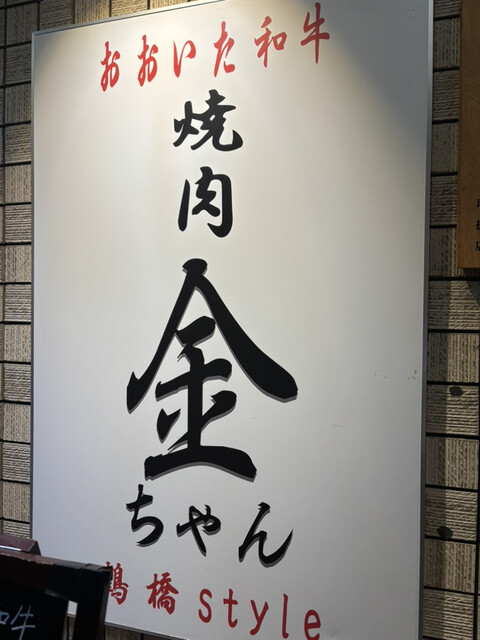 おおいた和牛
焼肉
金
ちゃん
鶴橋style
和牛